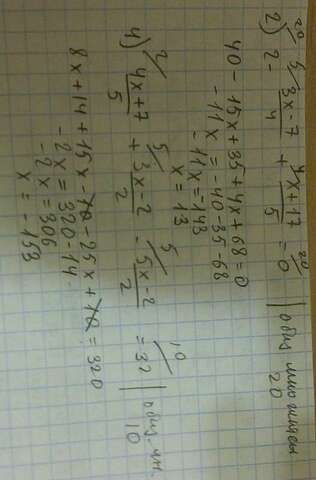 2) ²⁰⁄ 2 - ⁵⁄ (3x-7)/4 + ⁴⁄ (4x+17)/5 = ²⁰⁄ 0 | общ множитель 20
40 - 15x + 35 + 4x + 68 = 0
-11x = -40-35-68
-11x = 143
x = 13
4) ²⁄ (4x+7)/5 + ⁵⁄ (3x-2)/2 - ⁵⁄ (5x-2)/2 = ¹⁰⁄ 32 | общ. мн. 10
8x + 14 + 15x - 10 - 25x + 10 = 320
-2x = 320-14
-2x = 306
x = -153